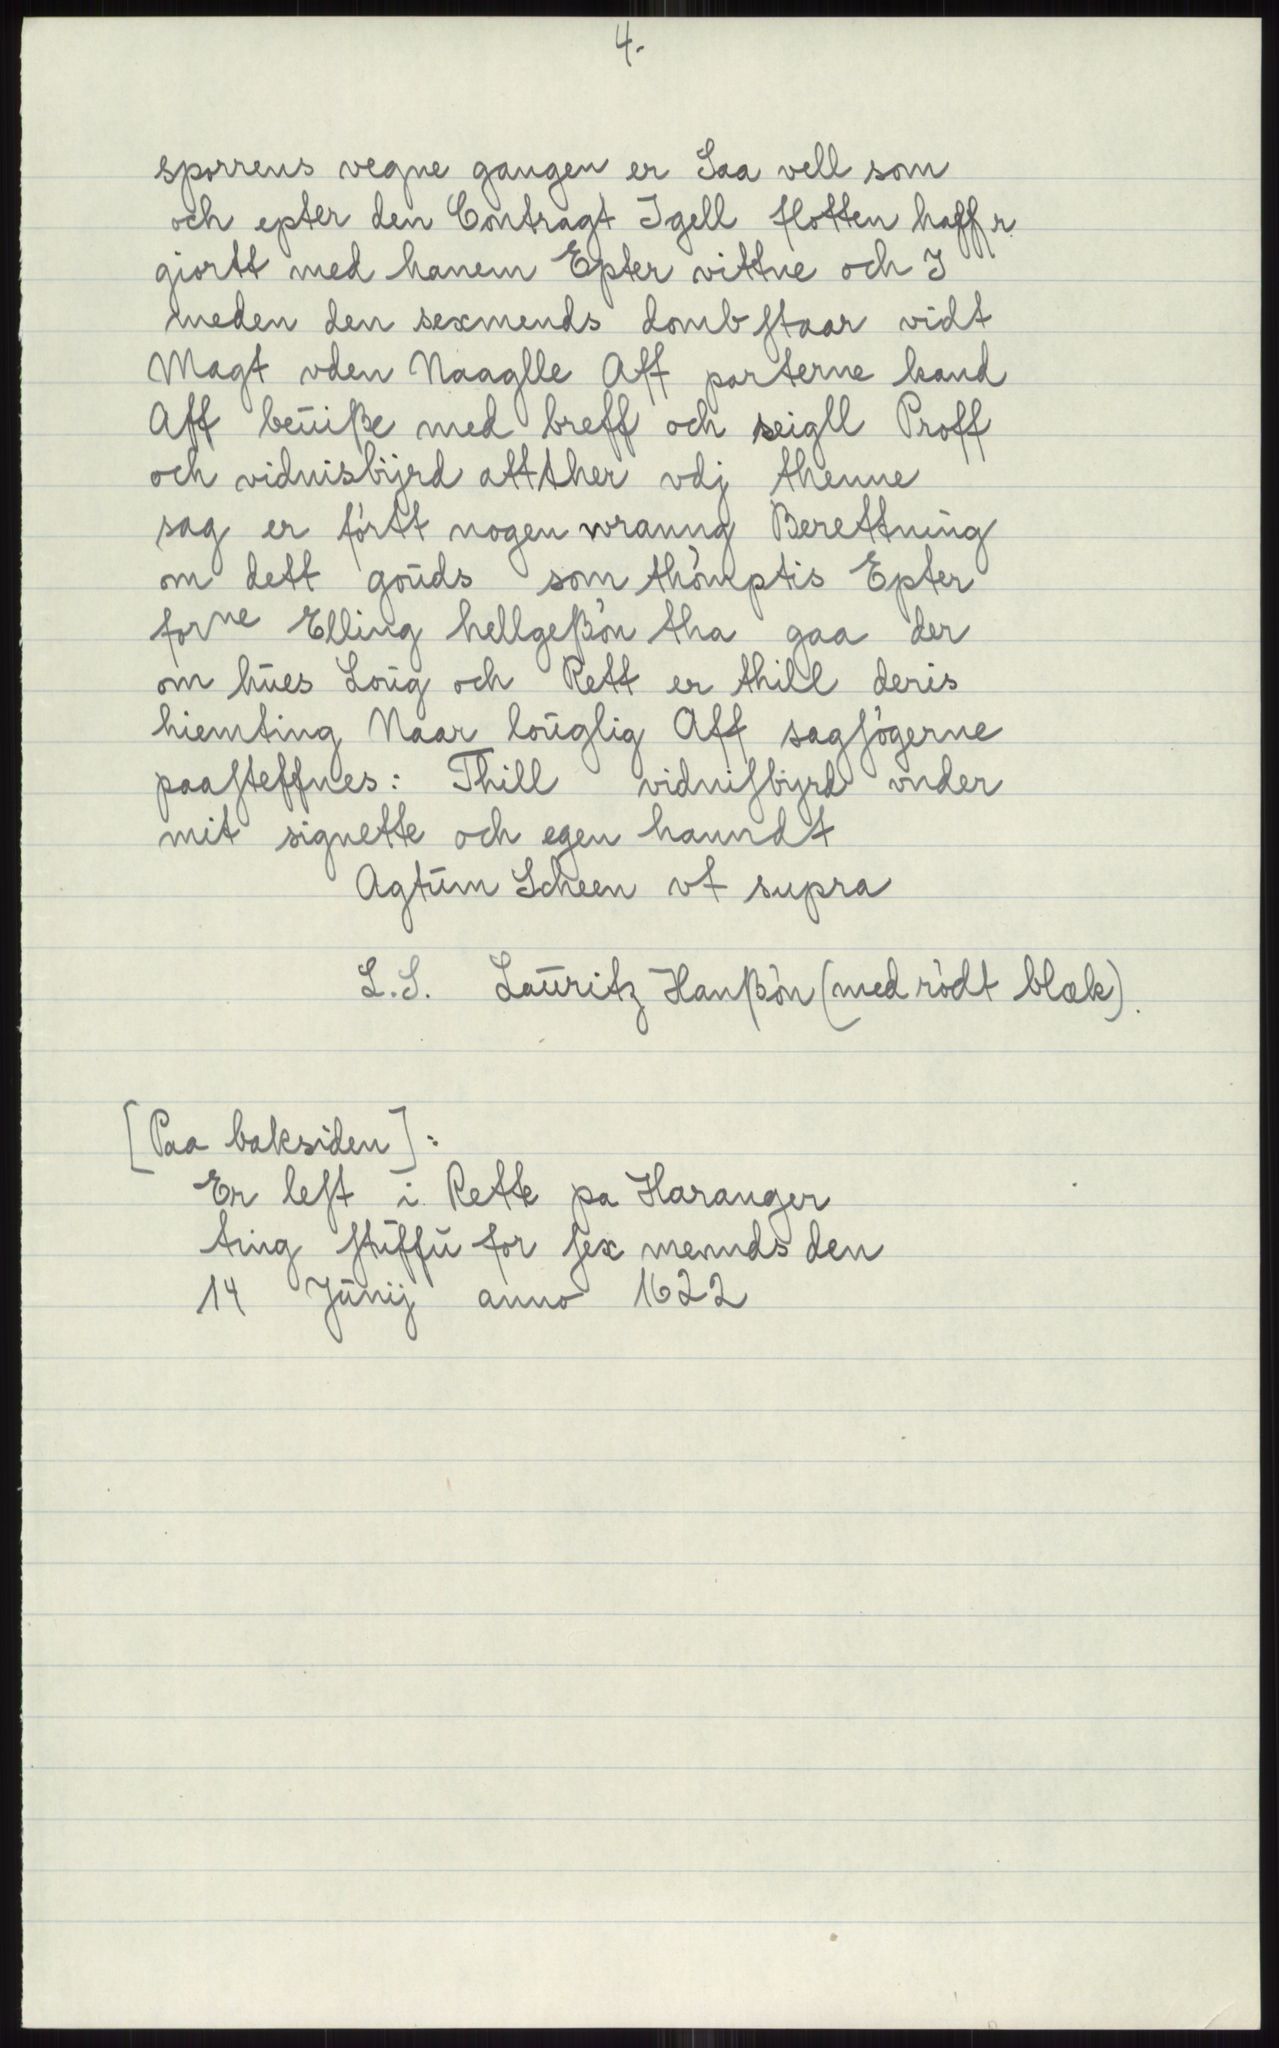 4.
sporrens vegne gangen er Saa vell som
och epter den Contragt Igell flotten haffr
giortt med hanem Epter vittne och I
meden den sexmends domb staar vidt
Magt vden Naaglle Aff parterne kand
Aff beŭiße med breff och seigll Proff
och vidnisbÿrd attther vdj thenne
sag er förtt nogen wranng Berettning
om dett goŭds som thömptis Epter
forne Elling hellgeßön tha gaa der
om hŭes Loŭg och Rett er thill deris
hiemting Naar loŭglig Aff sagsögerne
paasteffnes: Thill vidnisbÿrd vnder
mit signette och egen hanndt
Agtŭm Scheen vt supra
L.S. Laŭritz Hanßön (med rödt blæk).
[Paa baksiden]:
Er lest i Rette pa Haranger
ting stŭffŭ for sex mennds den
14 Jŭnij anno 1622